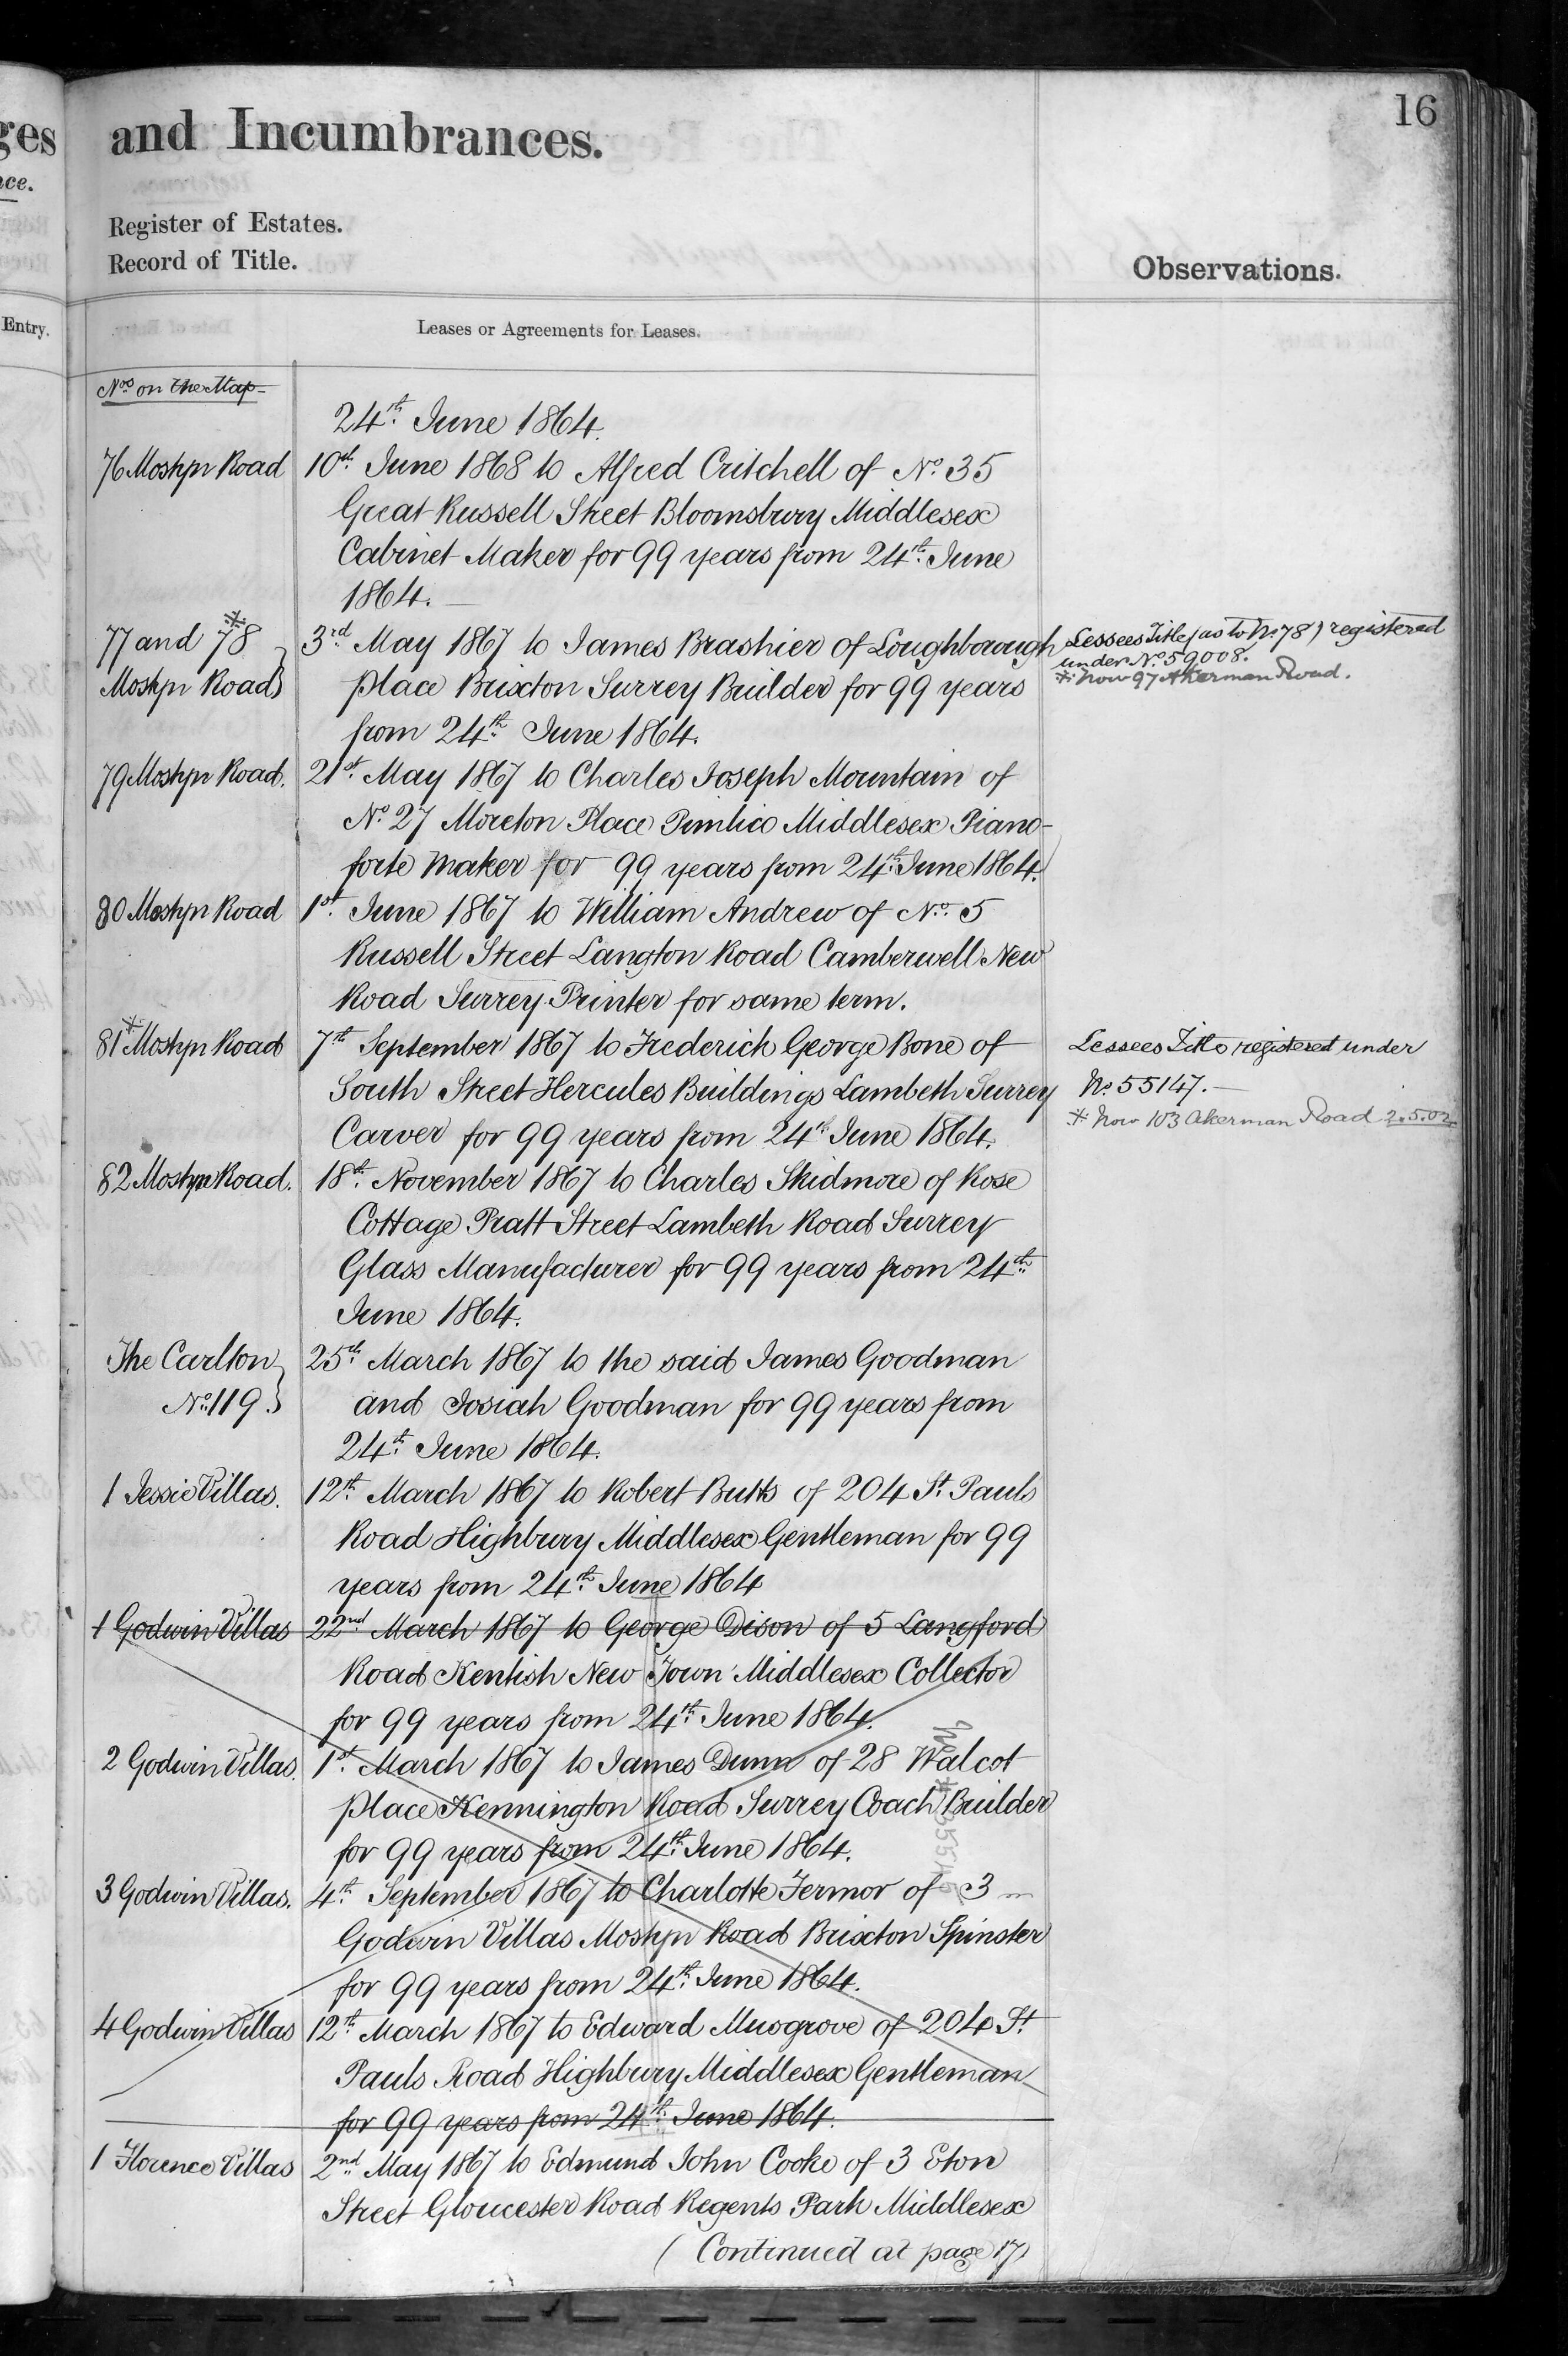 16
ges
and Incumbrances.
nce.
Register of Estates.
Record of Title.
Observations.
Entry.
Leases or Agreements for Leases.
Nos. on the Map
24th. June 1864.
76 Mostyn Road
10th. June 1868 to Alfred Critchell of No. 35
Great Russell Street Bloomsbury Middlesex
Cabinet Maker for 99 years from 24th. June
1864. —
77 and 78*
Mostyn Road
3rd May 1867 to James Brashier of Loughborough
Place Brixton Surrey Builder for 99 years
from 24th June 1864.
Lessees Title (as to No. 78) registered
under No. 59008.
* Now 97 Akerman Road.
79 Mostyn Road.
21st. May 1867 to Charles Joseph Mountain of
No. 27 Moreton Place Pimlico Middlesex Piano-
forte Maker for 99 years from 24th. June 1864.
80 Mostyn Road
1st. June 1867 to William Andrew of No. 5
Russell Street Langton Road Camberwell New
Road Surrey Printer for same term.
81* Mostyn Road
7th September 1867 to Frederick George Bone of
South Street Hercules Buildings Lambeth Surrey
Carver for 99 years from 24th June 1864.
Lessees Title registered under
No. 55147. —
* Now 103 Akerman Road 2.5.02
82 Mostyn Road.
18th. November 1867 to Charles Skidmore of Rose
Cottage Pratt Street Lambeth Road Surrey
Glass Manufacturer for 99 years from 24th.
June 1864.
The Carlton
No. 119.
25th. March 1867 to the said James Goodman
and Josiah Goodman for 99 years from
24th. June 1864.
1 Jessie Villas.
12th. March 1867 to Robert Butts of 204 St. Pauls
Road Highbury Middlesex Gentleman for 99
years from 24th. June 1864
1 Godwin Villas
22nd March 1867 to George Dison of 5 Langford
Road Kentish New Town Middlesex Collector
for 99 years from 24th. June 1864.
2 Godwin Villas.
1st. March 1867 to James Dunn of 28 Walcot
Place Kennington Road Surrey Coach Builder
for 99 years from 24th. June 1864.
3 Godwin Villas.
4th. September 1867 to Charlotte Fermor of 3
Godwin Villas Mostyn Road Brixton Spinster
for 99 years from 24th. June 1864.
4 Godwin Villas
12th. March 1867 to Edward Musgrove of 204 St
Pauls Road Highbury Middlesex Gentleman
for 99 years from 24th. June 1864.
1 Florence Villas
2nd. May 1867 to Edmund John Cooke of 3 Eton
Street Gloucester Road Regents Park Middlesex
(Continued at page 17)